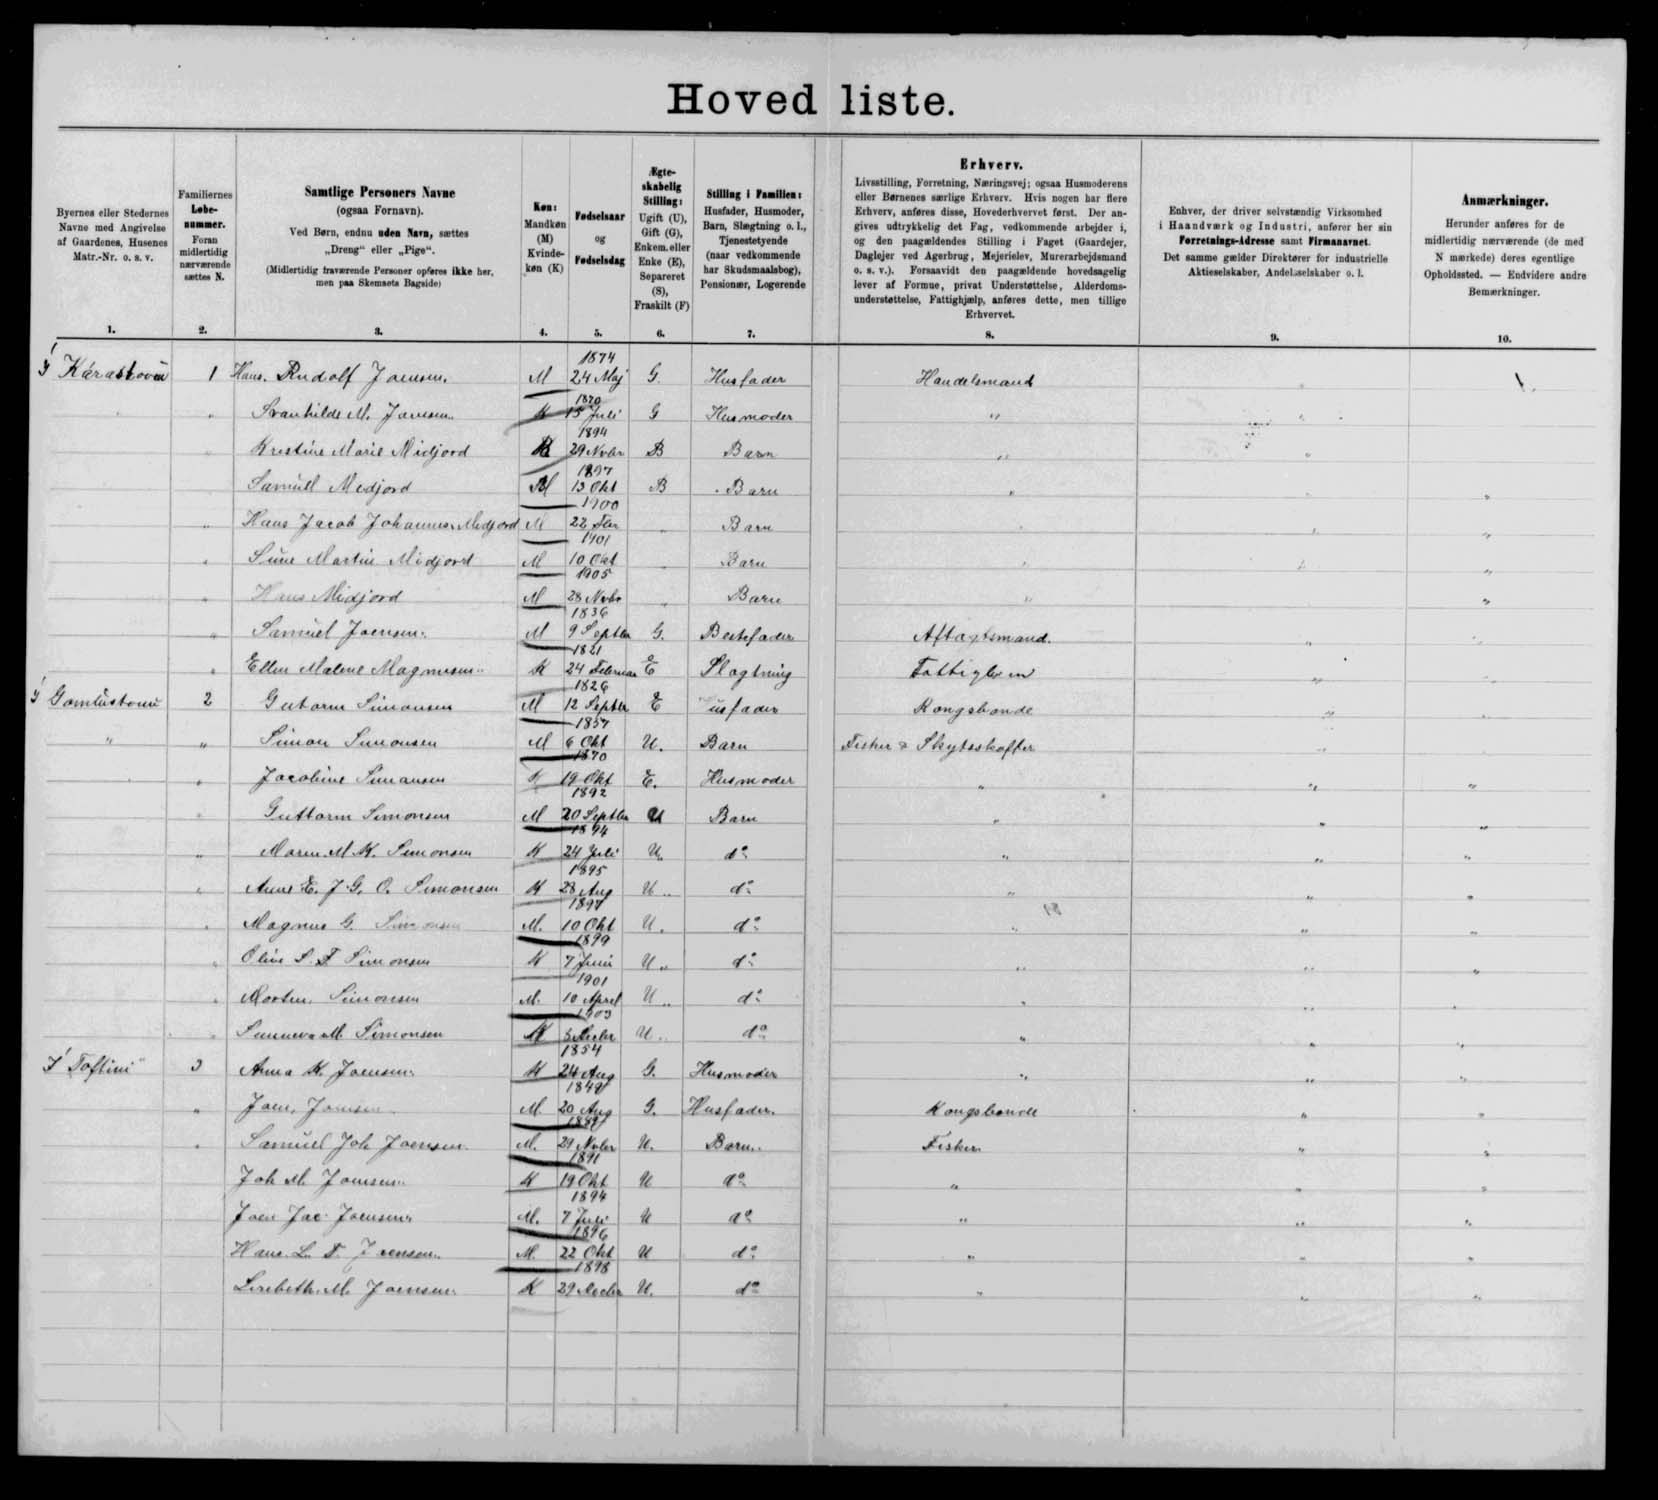 Hoved liste.
Byernes eller Stedernes Navne med Angivelse af Gaardenes, Husenes Matr.-Nr. o. s. v.
Familiernes Løbenummer. Foran midlertidig nærværende sættes N.
Samtlige Personers Navne (ogsaa Fornavn). Ved Børn, endnu uden Navn, sættes „Dreng“ eller „Pige“. (Midlertidig fraværende Personer opføres ikke her, men paa Skemaets Bagside)
Køn: Mandkøn (M) Kvindekøn (K)
Fødselsaar og Fødselsdag
Ægteskabelig Stilling: Ugift (U), Gift (G), Enkem. eller Enke (E), Separeret (S), Fraskilt (F)
Stilling i Familien: Husfader, Husmoder, Barn, Slægtning o. l., Tjenestetyende (naar vedkommende har Skudsmaalsbog), Pensionær, Logerende
Erhverv. Livsstilling, Forretning, Næringsvej; ogsaa Husmoderens eller Børnenes særlige Erhverv. Hvis nogen har flere Erhverv, anføres disse, Hovederhvervet først. Der angives udtrykkelig det Fag, vedkommende arbejder i, og den paagældendes Stilling i Faget (Gaardejer, Daglejer ved Agerbrug, Mejerielev, Murerarbejdsmand o. s. v.). Forsaavidt den paagældende hovedsagelig lever af Formue, privat Understøttelse, Alderdomsunderstøttelse, Fattighjælp, anføres dette, men tillige Erhvervet.
Enhver, der driver selvstændig Virksomhed i Haandværk og Industri, anfører her sin Forretnings-Adresse samt Firmanavnet. Det samme gælder Direktører for industrielle Aktieselskaber, Andelsselskaber o. l.
Anmærkninger. Herunder anføres for de midlertidig nærværende (de med N mærkede) deres egentlige Opholdssted. — Endvidere andre Bemærkninger.
1. 2. 3. 4. 5. 6. 7. 8. 9. 10.
1 Hans Rudolf Joensen. M 1874 24 Maj G. Husfader Handelsmand
" Svanhilde M. Joensen K 1870 15 Juli G Husmoder "
" Kristine Marie Midjord K 1894 29 Novbr B Barn "
Samuel Midjord M 1897 13 Okt B Barn "
" Hans Jacob Johannes Midjord M 1900 22 " Barn "
" Sune Martin Midjord M 1901 10 Okt " Barn "
" Hans Midjord M 1905 28 Novbr " Barn "
" Samuel Joensen M 1836 9 Septbr G. Bestefader Aftægtsmand.
" Ellen Malene Magnusen K 1821 24 Februar E Slægtning Fattiglem
2 Gutorm Simonsen M 1826 12 Septbr E Husfader Kongsbonde
" " Simon Simonsen M 1857 6 Okt U. Barn Fisker & Skydsskaffer
" Jacobine Simonsen K 1870 19 Okt E. Husmoder "
" Guttorm Simonsen M 1892 20 Septbr U Barn "
" Maren M. K. Simonsen K 1894 24 Juli U. do "
" Anne E. J. G. O. Simonsen K 1895 28 Aug U. do "
" Magnus G. Simonsen M. 1897 10 Okt U. do "
" Oline S. F Simonsen K 1899 7 Juni U. do "
" Morten Simonsen M. 1901 10 April U. do "
" Sunneva M. Simonsen K 1903 U. do "
Í Toftini 3 Anna K. Joensen K 1854 24 Aug G. Husmoder "
" Joen Joensen M. 20 Aug G. Husfader. Kongsbonde
" Samuel Joh Joensen M. 1889 29 Novbr U. Barn. Fisker.
Joh M. Joensen K 1891 19 Okt U do "
Joen Jac. Joensen M. 1894 7 Juli U do "
Hans L. T. Joensen M. 1896 22 Okt U do "
Lisebeth M. Joensen K 1898 29 Decbr U. do "